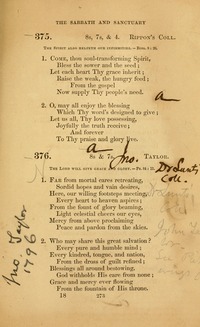 THE SABBATH AND SANCTUARY
375. 8s, 7s, & 4. RIPPON'S COLL.
THE SPIRIT ALSO HELPETH OUR INFIRMITIES.—ROM. 8: 26.
1. COME, thou soul-transforming Spirit,
Bless the sower and the seed;
Let each heart Thy grace inherit;
Raise the weak, the hungry feed;
From the gospel
Now supply Thy people's need.
2. O, may all enjoy the blessing
Which Thy word's designed to give;
Let us all, Thy love possessing,
Joyfully the truth receive;
And forever
To Thy praise and glory live.
a
a
376. 8s & 7s. Jno. TAYLOR.
THE LORD WILL GIVE GRACE AND GLORY.—PS. 84: 11.
1. FAR from mortal cares retreating,
Sordid hopes and vain desires,
Here, our willing footsteps meeting,
Every heart to heaven aspires;
From the fount of glory beaming,
Light celestial cheers our eyes,
Mercy from above proclaiming
Peace and pardon from the skies.
2. Who may share this great salvation?
Every pure and humble mind;
Every kindred, tongue, and nation,
From the dross of guilt refined;
Blessings all around bestowing,
God withholds His care from none;
Grace and mercy ever flowing
From the fountain of His throne.
Coll.
Jno Taylor
1796
18 273